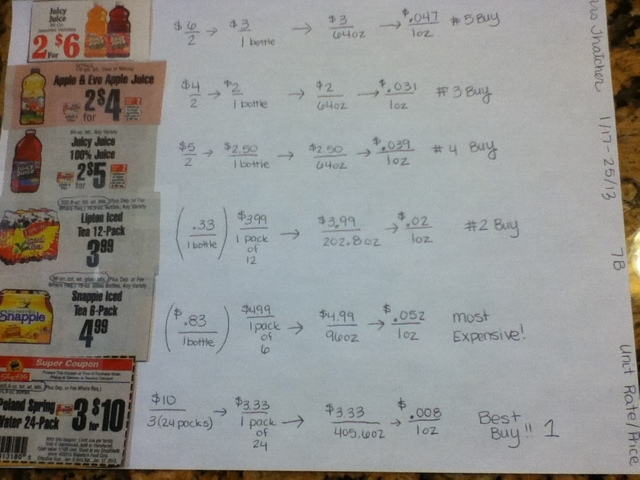 Juicy
Juice
2 FOR $6
$6/2 → $3/1 bottle → $3/64oz → $.047/1oz #5 Buy
Apple & Eve Apple Juice
2 for $4
$4/2 → $2/1 bottle → $2/64oz → $.031/1oz #3 Buy
Juicy Juice
100% Juice
2 for $5
$5/2 → $2.50/1 bottle → $2.50/64oz → $.039/1oz #4 Buy
Lipton Iced
Tea 12-Pack
3 99
(.33/1 bottle) $3.99/1 pack of 12 → $3.99/202.8oz → $.02/1oz #2 Buy
Snapple Iced
Tea 6-Pack
4 99
Snapple
($.83/1 bottle) $4.99/1 pack of 6 → $4.99/96oz → $.052/1oz most Expensive!
Super Coupon
Poland Spring
Water 24-Pack
3 for $10
$10/3(24packs) → $3.33/1 pack of 24 → $3.33/405.6oz → $.008/1oz Best Buy!! 1
Thatcher 1/17-25/13 7B Unit Rate/Price